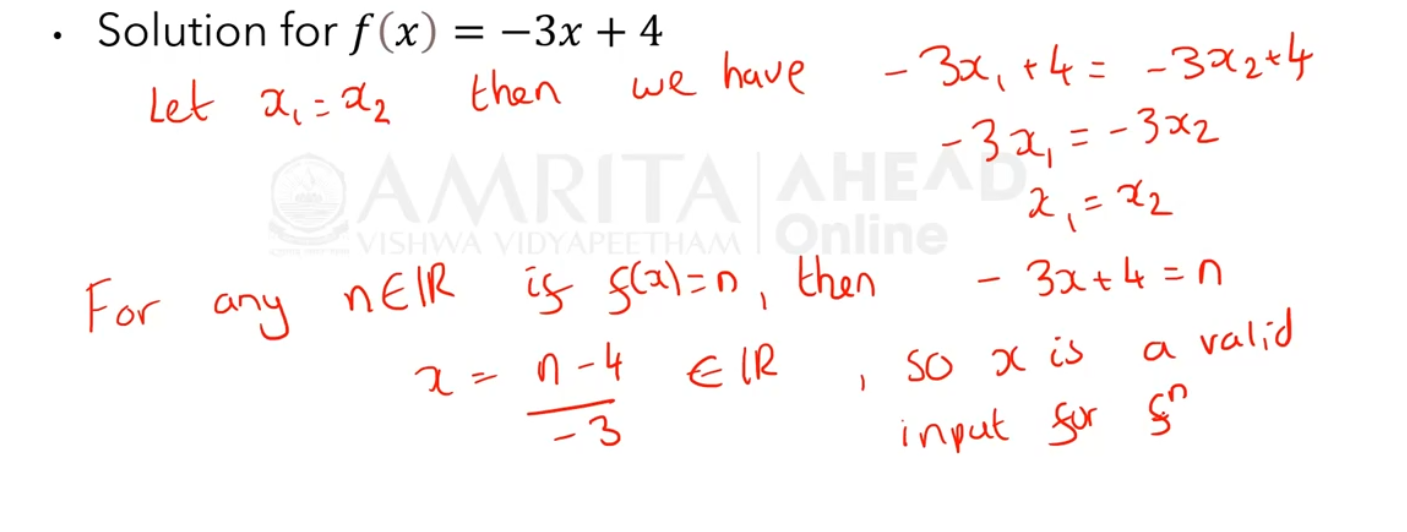 • Solution for f(x) = −3x + 4
Let x₁ = x₂ then we have -3x₁ + 4 = -3x₂ + 4
-3x₁ = -3x₂
x₁ = x₂
AMRITA AHEAD
VISHWA VIDYAPEETHAM Online
For any n∈ℝ if f(x) = n, then -3x + 4 = n
x = n - 4 / -3 ∈ ℝ, so x is a valid
input for fⁿ